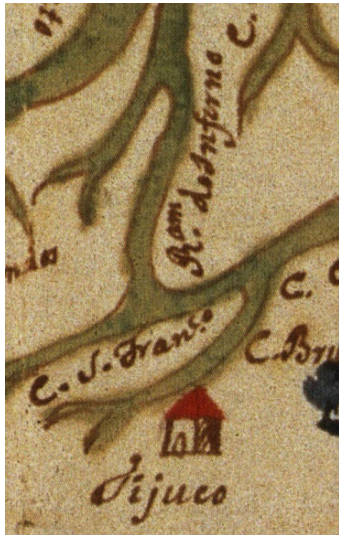 C.
R.am do Inferno
C.
C. S. Fran.co
C. Bru
Tijuco